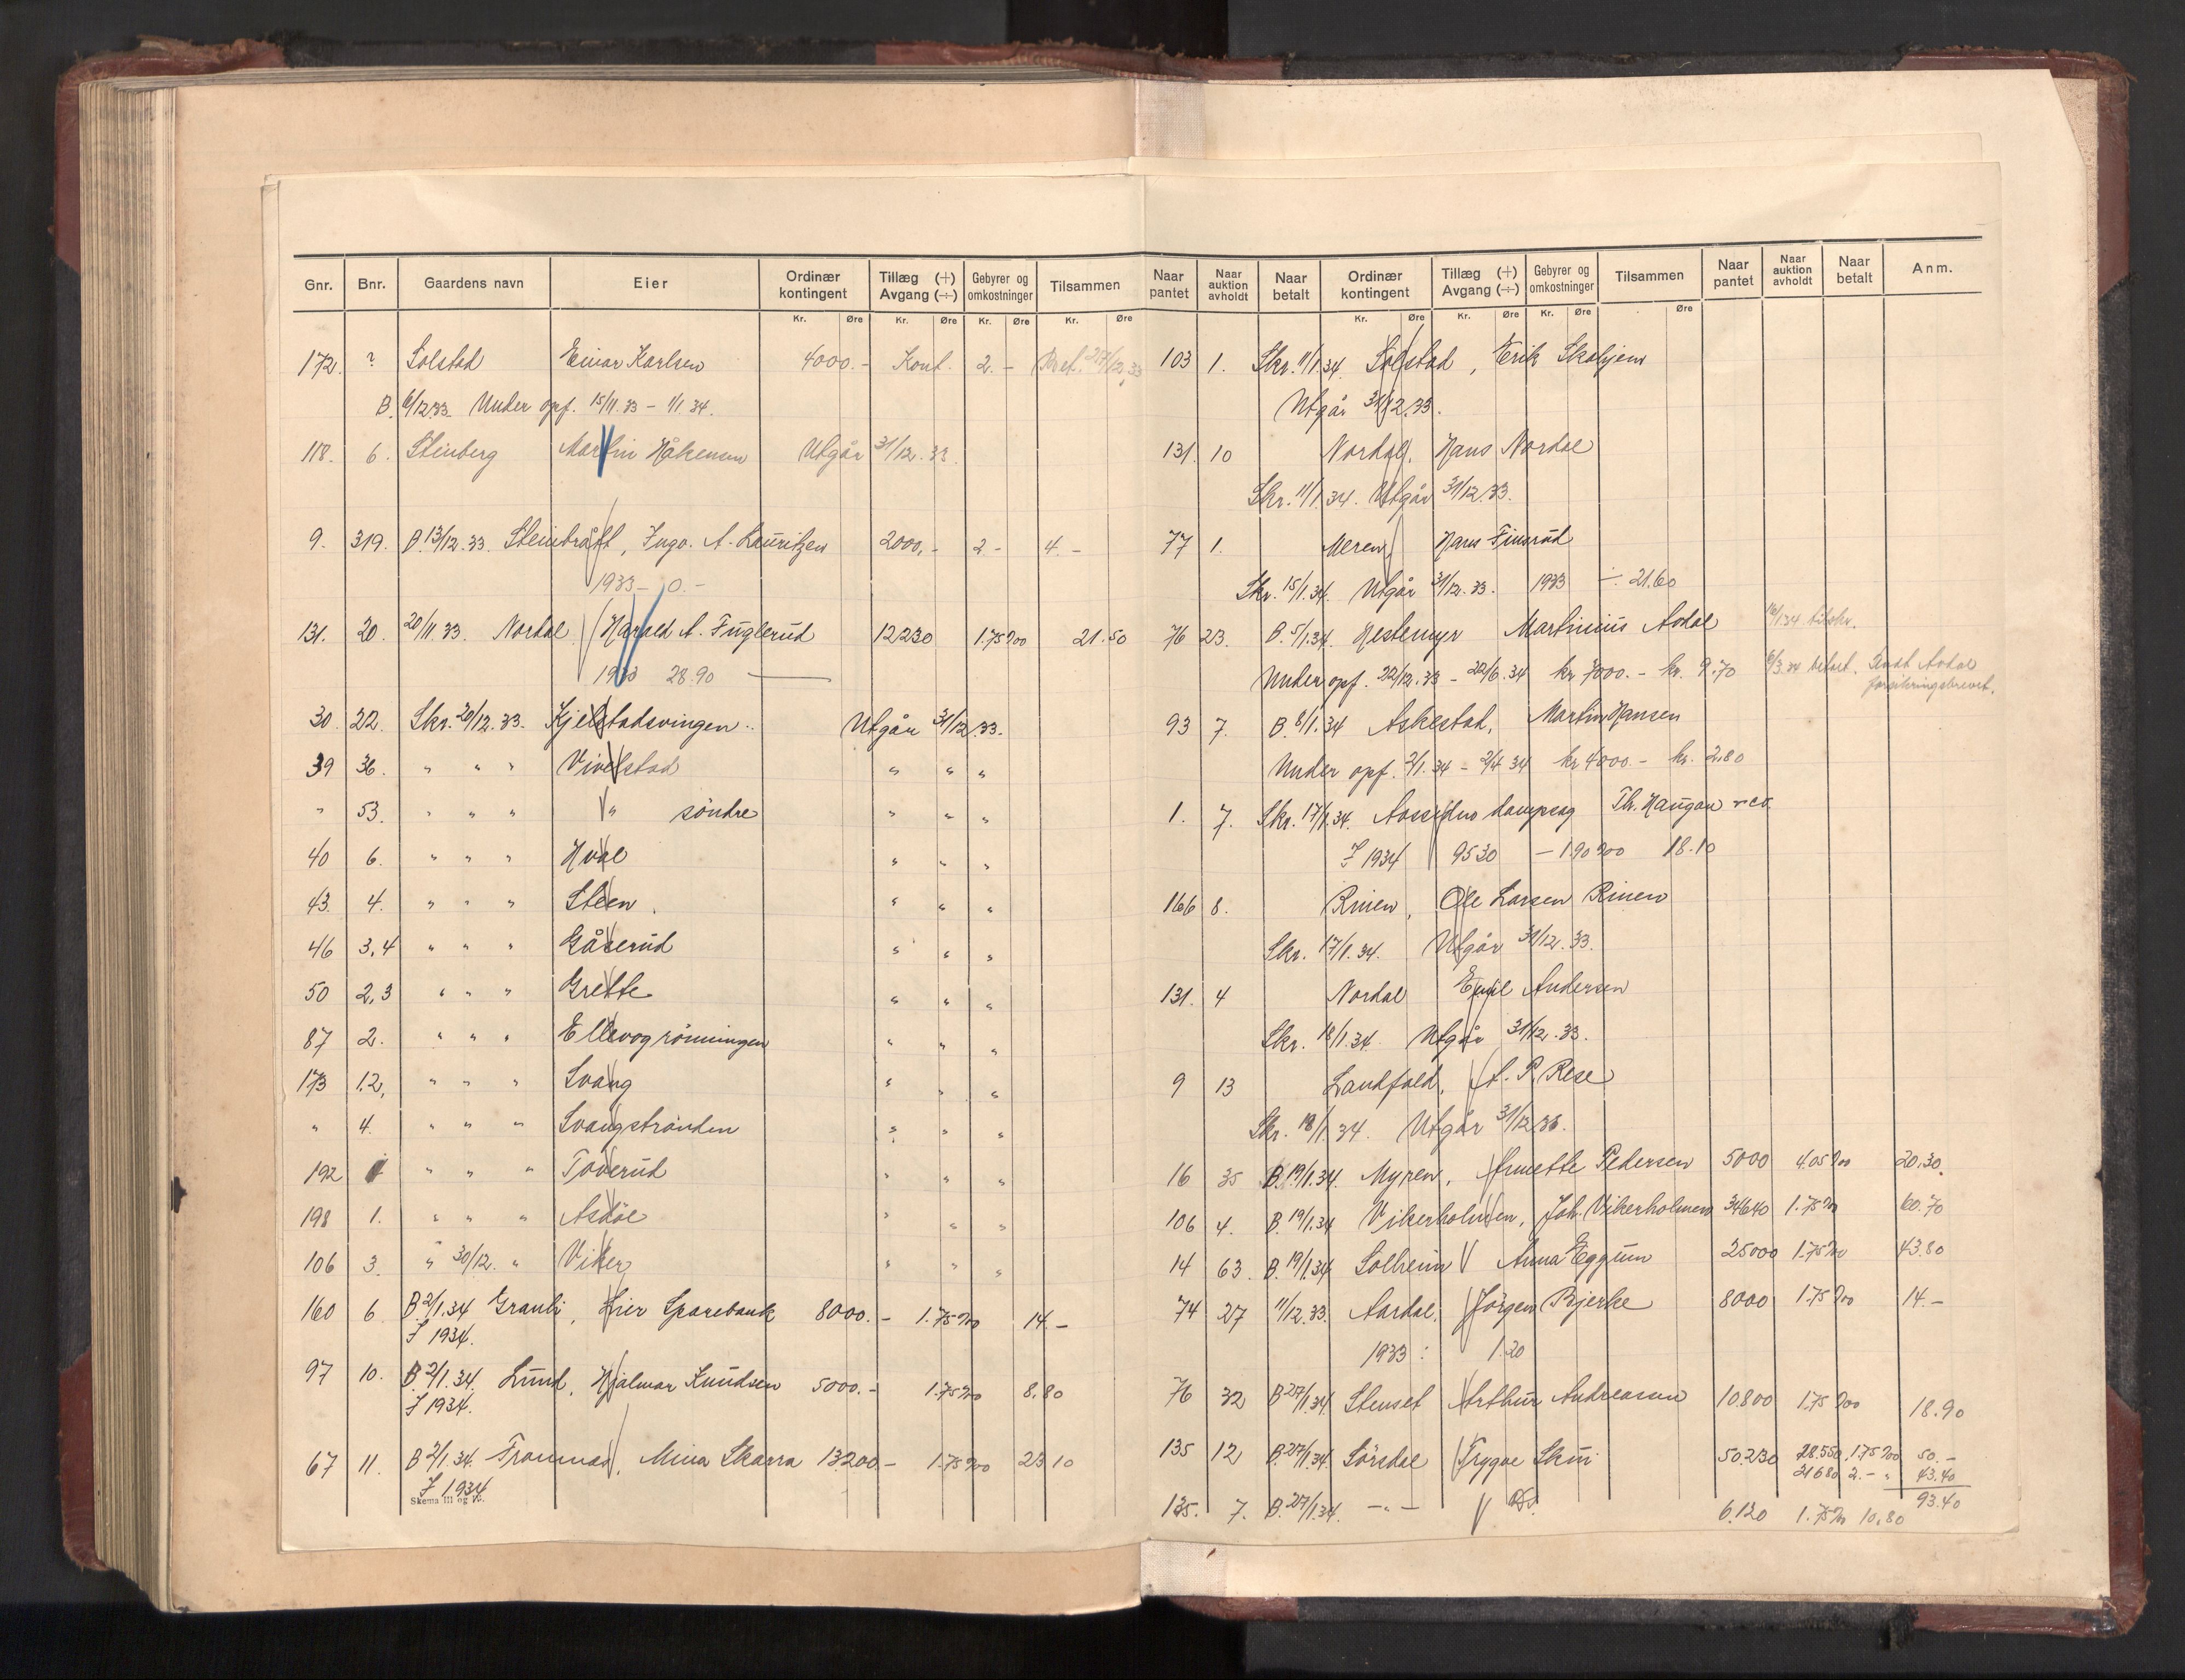 Gnr. Bnr. Gaardens navn Eier Ordinær kontingent Tillæg (+) Avgang (÷) Gebyrer og omkostninger Tilsammen
Kr. Øre Kr. Øre Kr. Øre Kr. Øre
172. ? Solstad Einar Karlsen 4000.- Kont. 2.- Bet. 27/12.33
B. 6/12.33. Under opf. 15/11.33 - 1/1 34.
118. 6. Stenberg Martin Håkensen Utgår 31/12.33.
9. 319. B. 13/12.33. Steinbrått, Ingv. A. Lauritzen 2000,- 2- 4.-
1933 - 0.-
131. 20. 20/11.33. Nordal Harald A. Fuglerud 12230 1.75 ‰ 21.50
1933 28.90
30. 22. Skr. 20/12.33. Kjelstadsvingen.. Utgår 31/12.33.
39 36. " " " Vivelstad " " "
" 53. " " " " söndre " " "
40 6. " " " Hval " " "
43. 4. " " " Steen. " " "
46 3,4 " " " Gåserud " " "
50 2,3 " " " Grette " " "
87 2. " " " Ellevogrönningen " " "
173 1.2, " " " Svang " " "
" 4. " " " Svangstranden " " "
192 " " " Toverud " " "
198 1. " " " Asdöl " " "
106 3. " 30/12. " Viker " " "
160 6 B 2/1.34 Granli, Lier Sparebank 8000.- 1.75 ‰ 14.-
F 1934.
97 10. B 2/1.34. Lund, Hjalmar Knudsen 5000.- 1.75 ‰ 8.80
F 1934.
67 11. B 2/1.34. Tranmæl, Mina Skarra 13200.- 1.75 ‰ 23 10
F 1934
Skema III og IV.
Naar pantet Naar auktion avholdt Naar betalt Ordinær kontingent Tillæg (+) Avgang (÷) Gebyrer og omkostninger Tilsammen Naar pantet Naar auktion avholdt Naar betalt Anm.
Kr. Øre Kr. Øre Kr. Øre Øre
103 1. Skr. 11/1.34. Solstad, Erik Skohjem
Utgår 31/12.33.
131. 10 Nordal, Hans Nordal
Skr. 11/1.34. Utgår 31/12.33.
77 1. Meren Hans Finsrud
Skr. 15/1.34. Utgår 31/12.33. 1933 ÷ 21.60
76 23. B. 5/1.34. Hestemyr Martinius Avdal 16/1.34 tilskr.
Under opf. 22/12.33 - 22/6.34 kr 7000.- kr. 9.70 6/3.34 betalt. Sendt Avdal
forsikringsbrevet.
93 7. B. 8/1.34 Askestad, Martin Hansen
Under opf. 2/1.34 - 2/4 34 kr 4000.- kr. 2.80
1. 7. Skr. 17/1.34. Aassidens dampsag Th. Haugan & co.
F 1934 9530 - 1.90 ‰ 18.10
166 8. Rinen, Ole Larsen Rinen
Skr. 17/1.34. Utgår 31/12.33.
131. 4 Nordal Emil Andersen
Skr. 18/1.34. Utgår 31/12.33.
9 13 Landfald, A. P. Rese
Skr. 18/1 34. Utgår 31/12 33.
16 35 B. 19/1.34. Myren, Annette Pedersen 5000 4.05 ‰ 20.30.
106 4. B. 19/1.34 Vikerholmen, Joh. Vikerholmen 34640 1.75 ‰ 60.70
14 63. B. 19/1.34 Solheim Anna Eggum 25000 1.75 ‰ 43.80
74 27 11/12.33. Aardal, Jörgen Bjerke 8000 1.75 ‰ 14.-
1933: 1.20
76 32 B 27/1.34. Stenset Arthur Andreassen 10.800 1.75 ‰ 18.90
135 12 B. 27/1.34. Sörsdal Trygve Skui 50.230 28.550, 1.75 ‰ 50.-
21680 2.- " 43.40
93.40
135. 7. B. 27/1.34. -"- Do. 6.120 1.75 ‰ 10.80